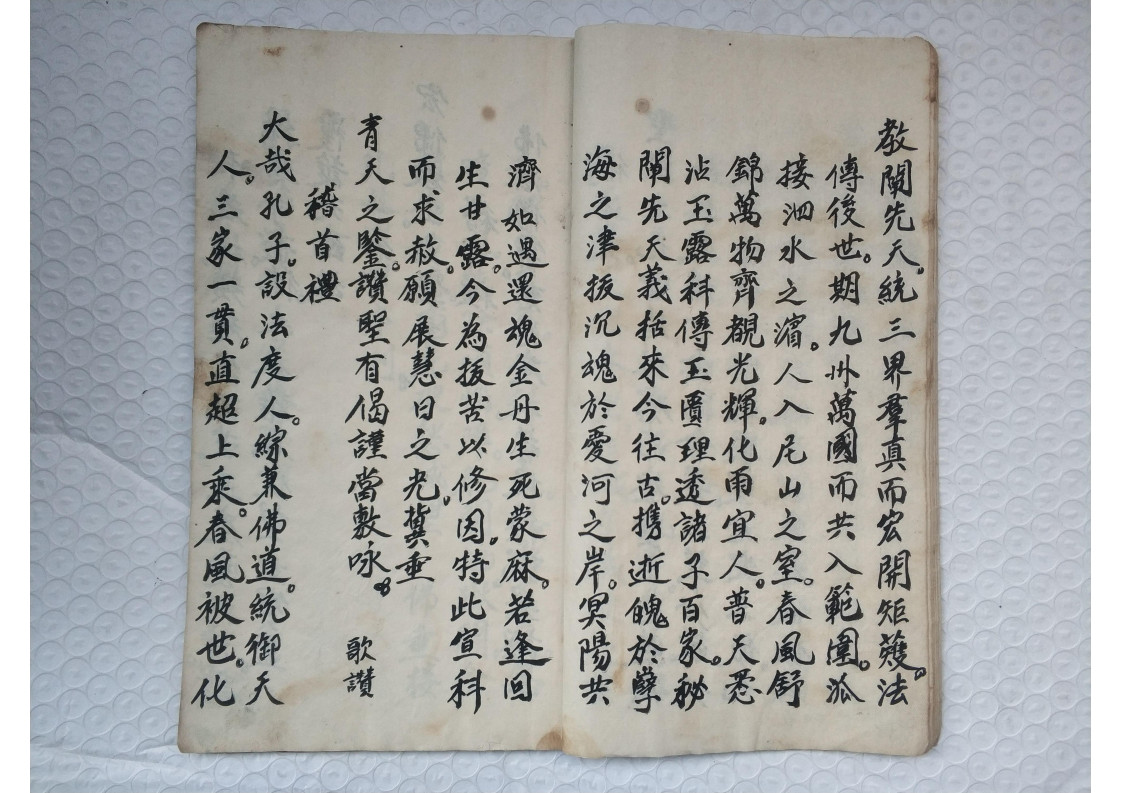 教闡先天。統三界羣真而宏開矩矱。法
傳後世。期九州萬國而共入範圍。派
接泗水之濵。人入尼山之室。春風舒
錦萬物齊覩光輝。化雨宜人。普天悉
沾玉露科傳玉匱理透諸子百家。秘
闡先天義括來今往古。携逝魄於孽
海之津拔沉魂於愛河之岸。冥陽共
濟如遇還魂金丹生死蒙庥。若逢回
生甘露。今為拔苦以修因。特此宣科
而求赦。願展慧日之光。冀垂
青天之鑒。讚聖有偈謹當敷咏
歌讚
稽首禮
大哉孔子。設法度人。綜兼佛道。統御天
人。三家一貫。直超上乘。春風被世。化